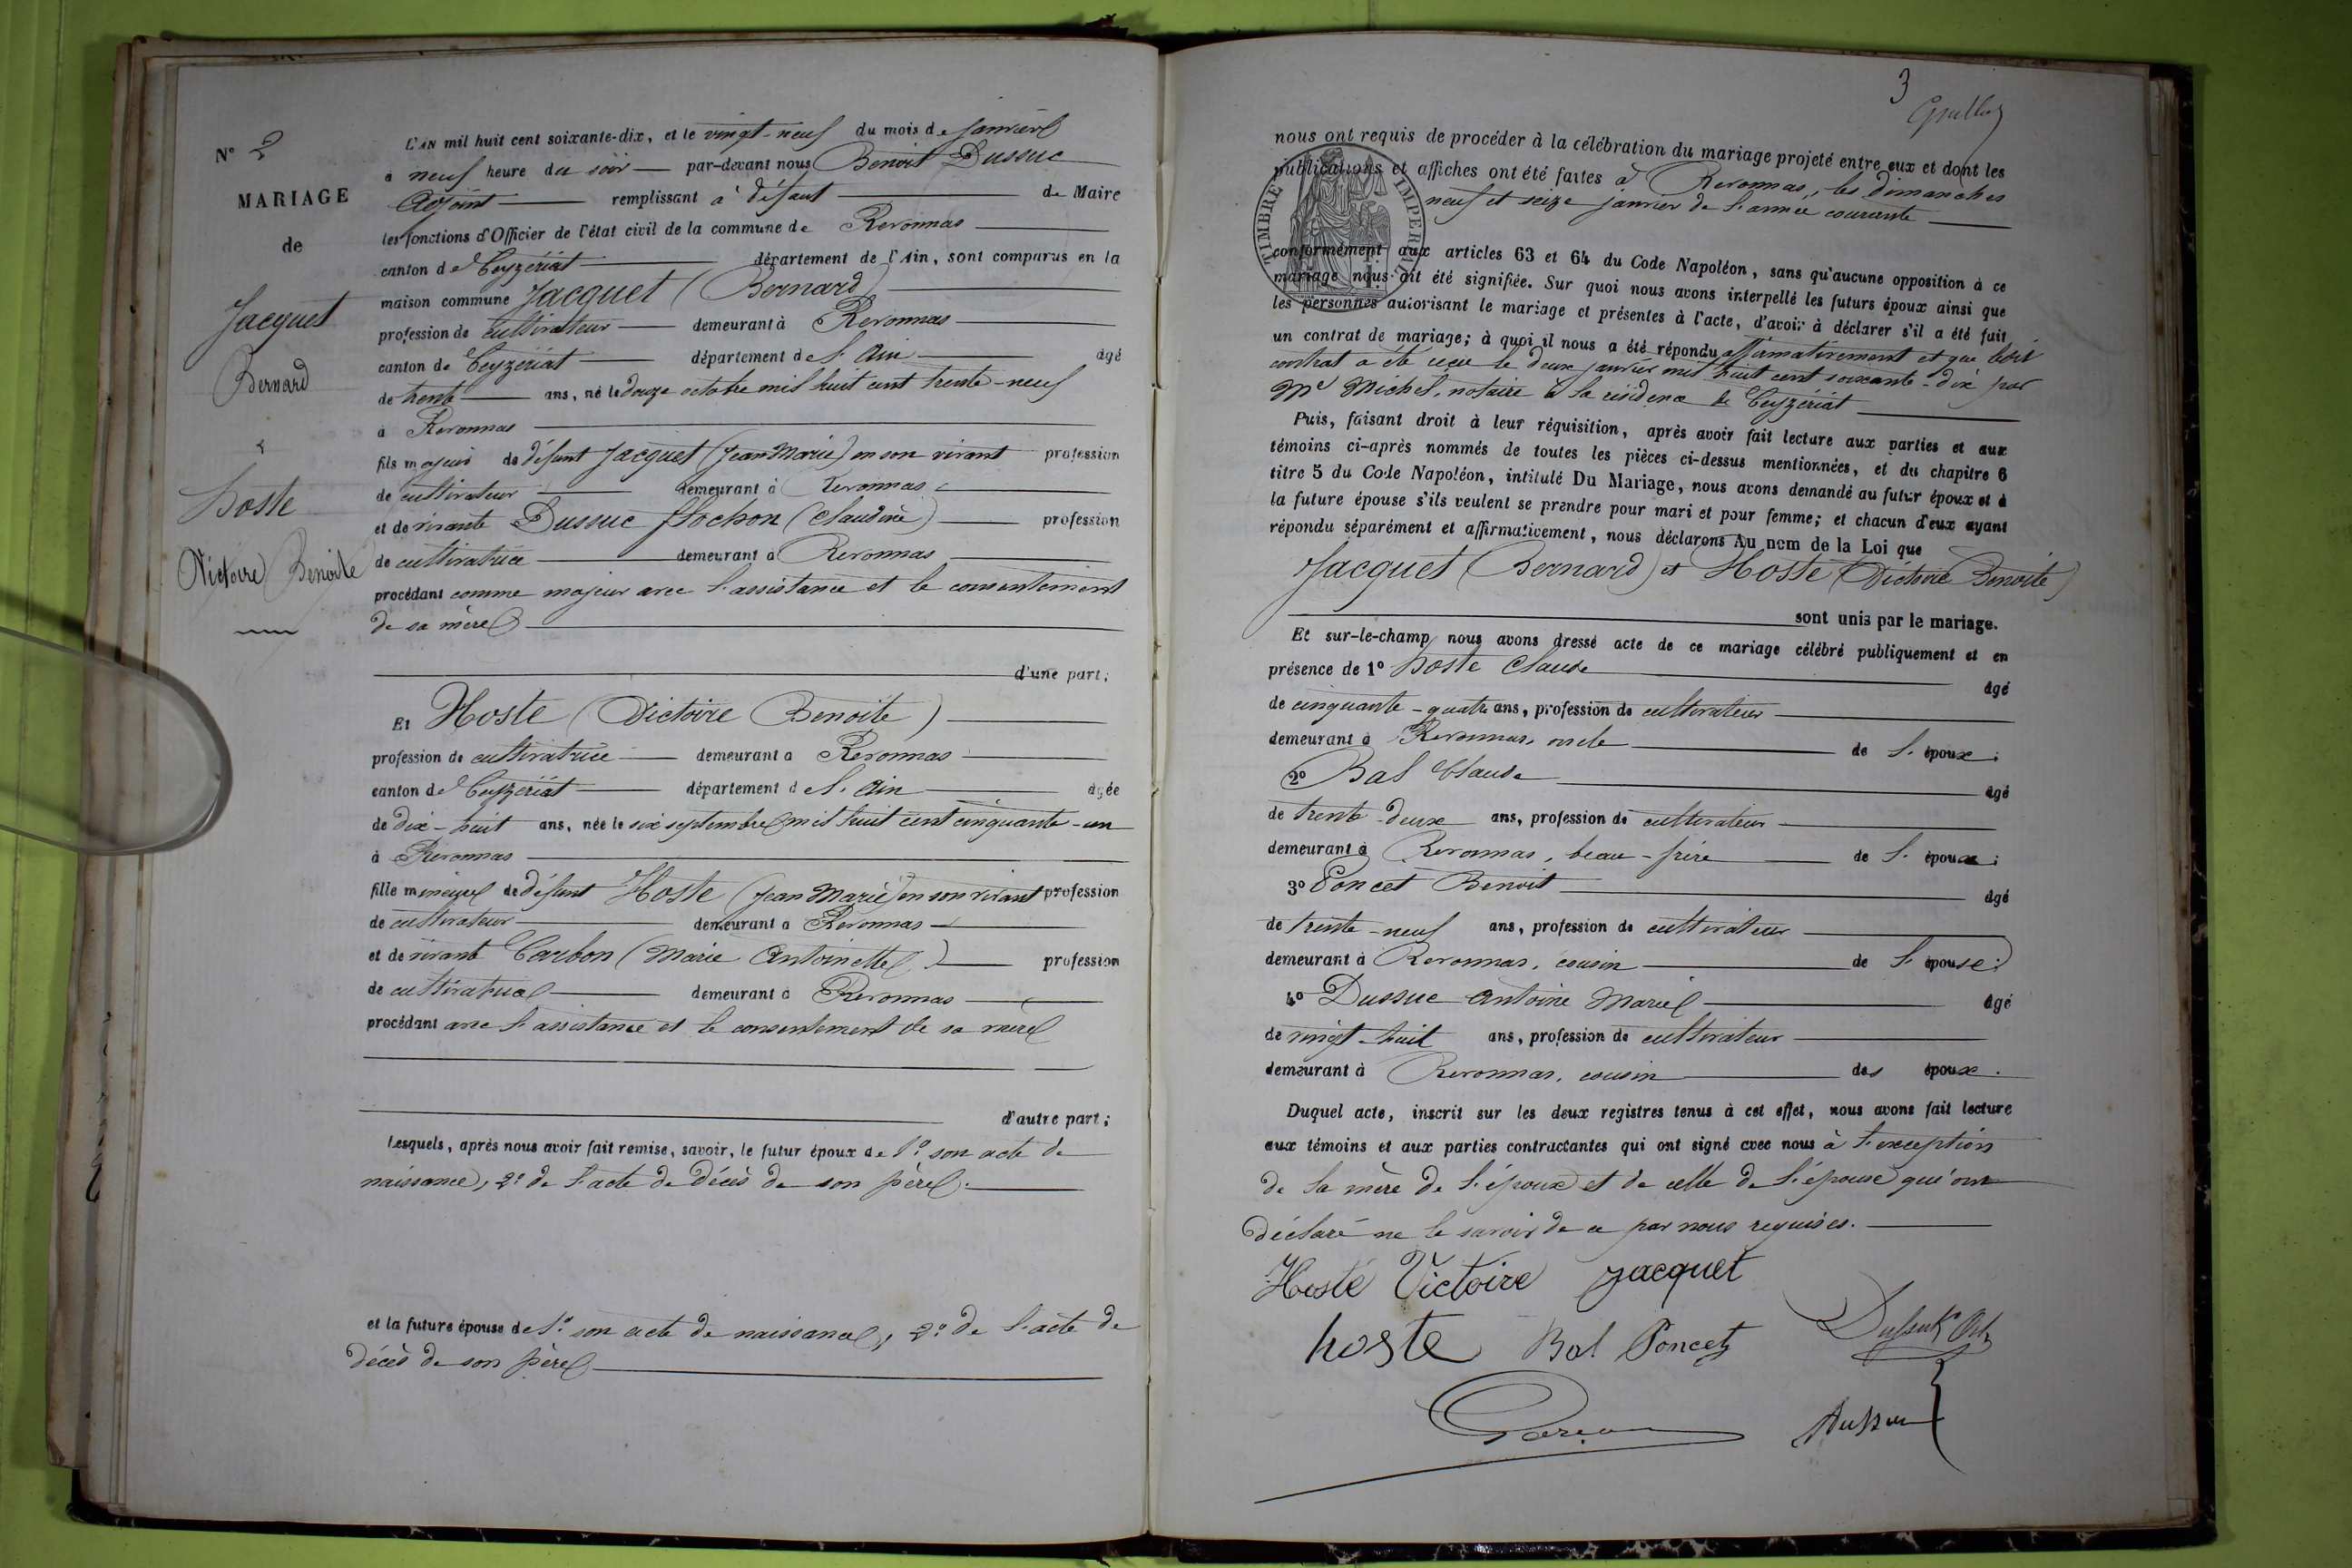 N° 2
MARIAGE
de
Jacquet
Bernard
&
hoste
Victoire Benoite
L'AN mil huit cent soixante-dix, et le vingt-neuf du mois de Janvier
à neuf heure du soir par-devant nous Benoit Dussuc
Adjoint remplissant à défaut de Maire
les fonctions d'Officier de l'état civil de la commune de Revonnas
canton de Ceyzériat département de l'Ain, sont comparus en la
maison commune Jacquet (Bernard)
profession de cultivateur demeurant à Revonnas
canton de Ceyzériat département de l'Ain âgé
de trente ans, né le douze octobre mil huit cent trente-neuf
à Revonnas
fils majeur de défunt Jacquet (Jean Marie) en son vivant profession
de cultivateur demeurant à Revonnas
et de vivante Dussuc Flochon (Claudine) profession
de cultivatrice demeurant à Revonnas
procédant comme majeur avec l'assistance et le consentement
de sa mère
d'une part;
Et Hoste (Victoire Benoite)
profession de cultivatrice demeurant à Revonnas
canton de Ceyzériat département de l'Ain âgée
de dix-huit ans, née le six septembre mil huit cent cinquante-un
à Revonnas
fille mineure de défunt Hoste (Jean Marie) en son vivant profession
de cultivateur demeurant à Revonnas
et de vivante Carbon (Marie Antoinette) profession
de cultivatrice demeurant à Revonnas
procédant avec l'assistance et le consentement de sa mère
d'autre part;
Lesquels, après nous avoir fait remise, savoir, le futur époux de 1° son acte de
naissance, 2° de l'acte de décès de son père.
et la future épouse de 1° son acte de naissance, 2° de l'acte de
décès de son père
3
nous ont requis de procéder à la célébration du mariage projeté entre eux et dont les
publications et affiches ont été faites à Revonnas, les dimanches
neuf et seize janvier de l'année courante
TIMBRE IMPERIAL
conformément aux articles 63 et 64 du Code Napoléon, sans qu'aucune opposition à ce
mariage nous ait été signifiée. Sur quoi nous avons interpellé les futurs époux ainsi que
les personnes autorisant le mariage et présentes à l'acte, d'avoir à déclarer s'il a été fait
un contrat de mariage; à quoi il nous a été répondu affirmativement et que ledit
contrat a été reçu le deux janvier mil huit cent soixante-dix par
Me Michel, notaire à la résidence de Ceyzériat
Puis, faisant droit à leur réquisition, après avoir fait lecture aux parties et aux
témoins ci-après nommés de toutes les pièces ci-dessus mentionnées, et du chapitre 6
titre 5 du Code Napoléon, intitulé Du Mariage, nous avons demandé au futur époux et à
la future épouse s'ils veulent se prendre pour mari et pour femme; et chacun d'eux ayant
répondu séparément et affirmativement, nous déclarons Au nom de la Loi que
Jacquet (Bernard) et Hoste (Victoire Benoite)
sont unis par le mariage.
Et sur-le-champ nous avons dressé acte de ce mariage célébré publiquement et en
présence de 1° hoste Claude âgé
de cinquante-quatre ans, profession de cultivateur
demeurant à Revonnas, oncle de l'époux;
2° Bal Claude âgé
de trente-deux ans, profession de cultivateur
demeurant à Revonnas, beau-frère de l'époux;
3° Poncet Benoit âgé
de trente-neuf ans, profession de cultivateur
demeurant à Revonnas, cousin de l'épouse;
4° Dussuc Antoine Marie âgé
de vingt-huit ans, profession de cultivateur
demeurant à Revonnas, cousin des époux.
Duquel acte, inscrit sur les deux registres tenus à cet effet, nous avons fait lecture
aux témoins et aux parties contractantes qui ont signé avec nous à l'exception
de la mère de l'époux et de celle de l'épouse qui ont
déclaré ne le savoir de ce par nous requises.
Hoste Victoire Jacquet
hoste Bal Poncet
Dussuc